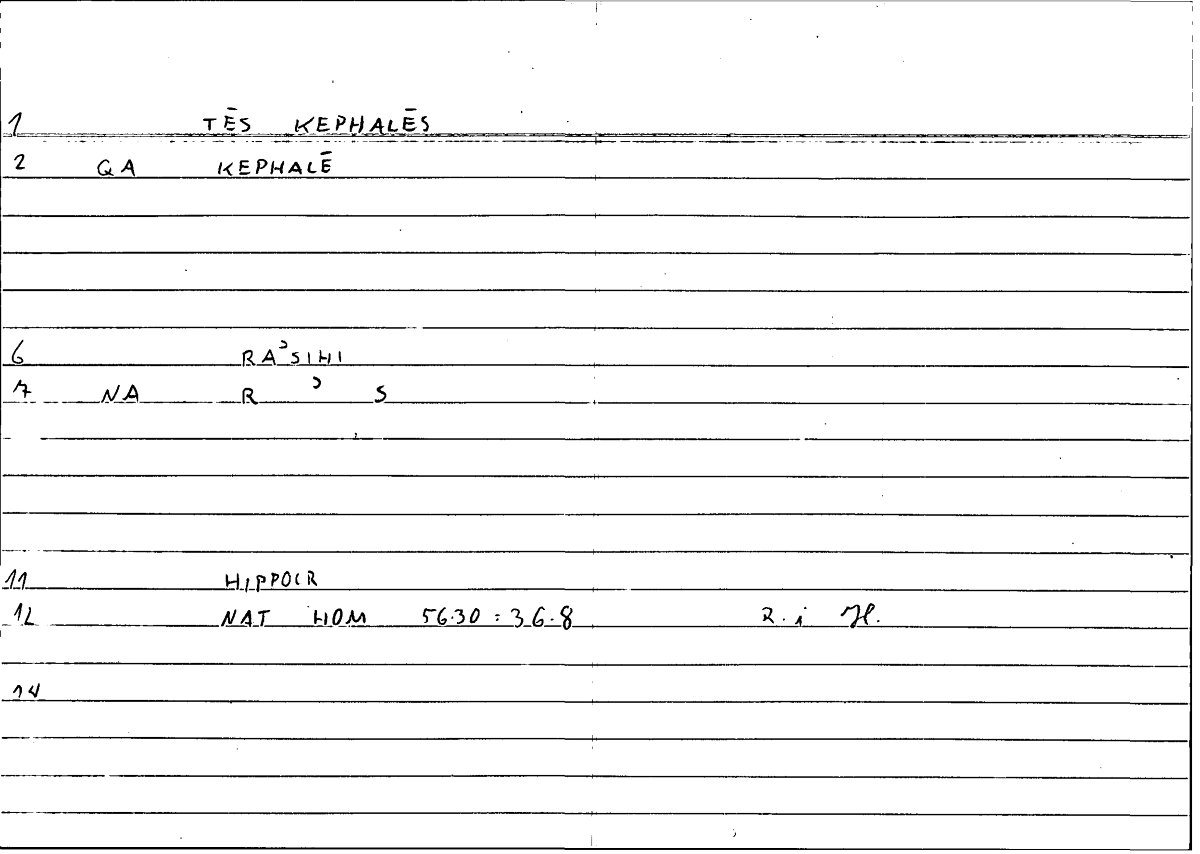 1 TĒS KEPHALĒS
2 QA KEPHALĒ
6 RAʾSIHI
7 NA R ʾ S
11 HIPPOCR
12 NAT HOM 56.30 = 36.8 R. i H.
14